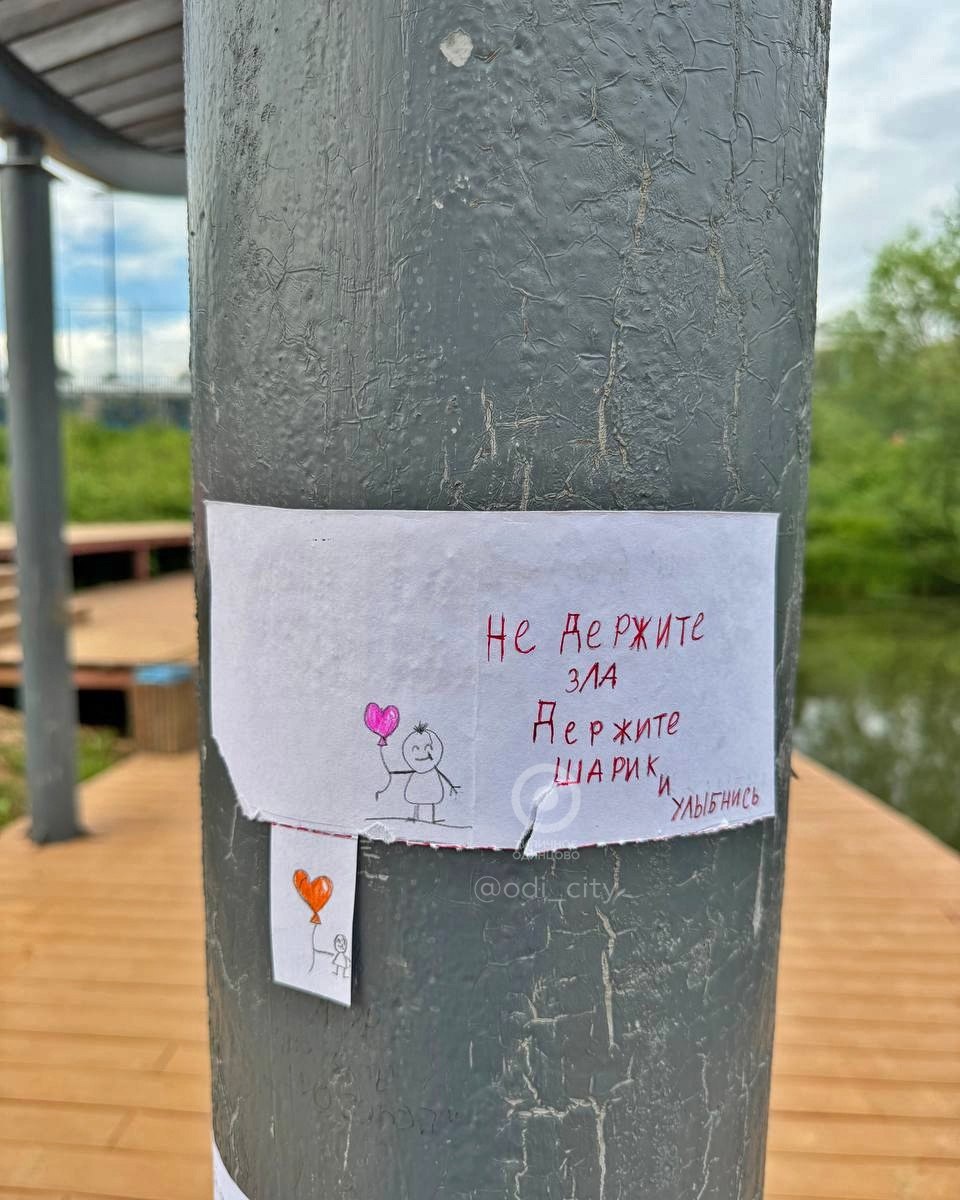 Не держите
зла
Держите
шарик
и
улыбнись
ОДИНЦОВО
@odi_city